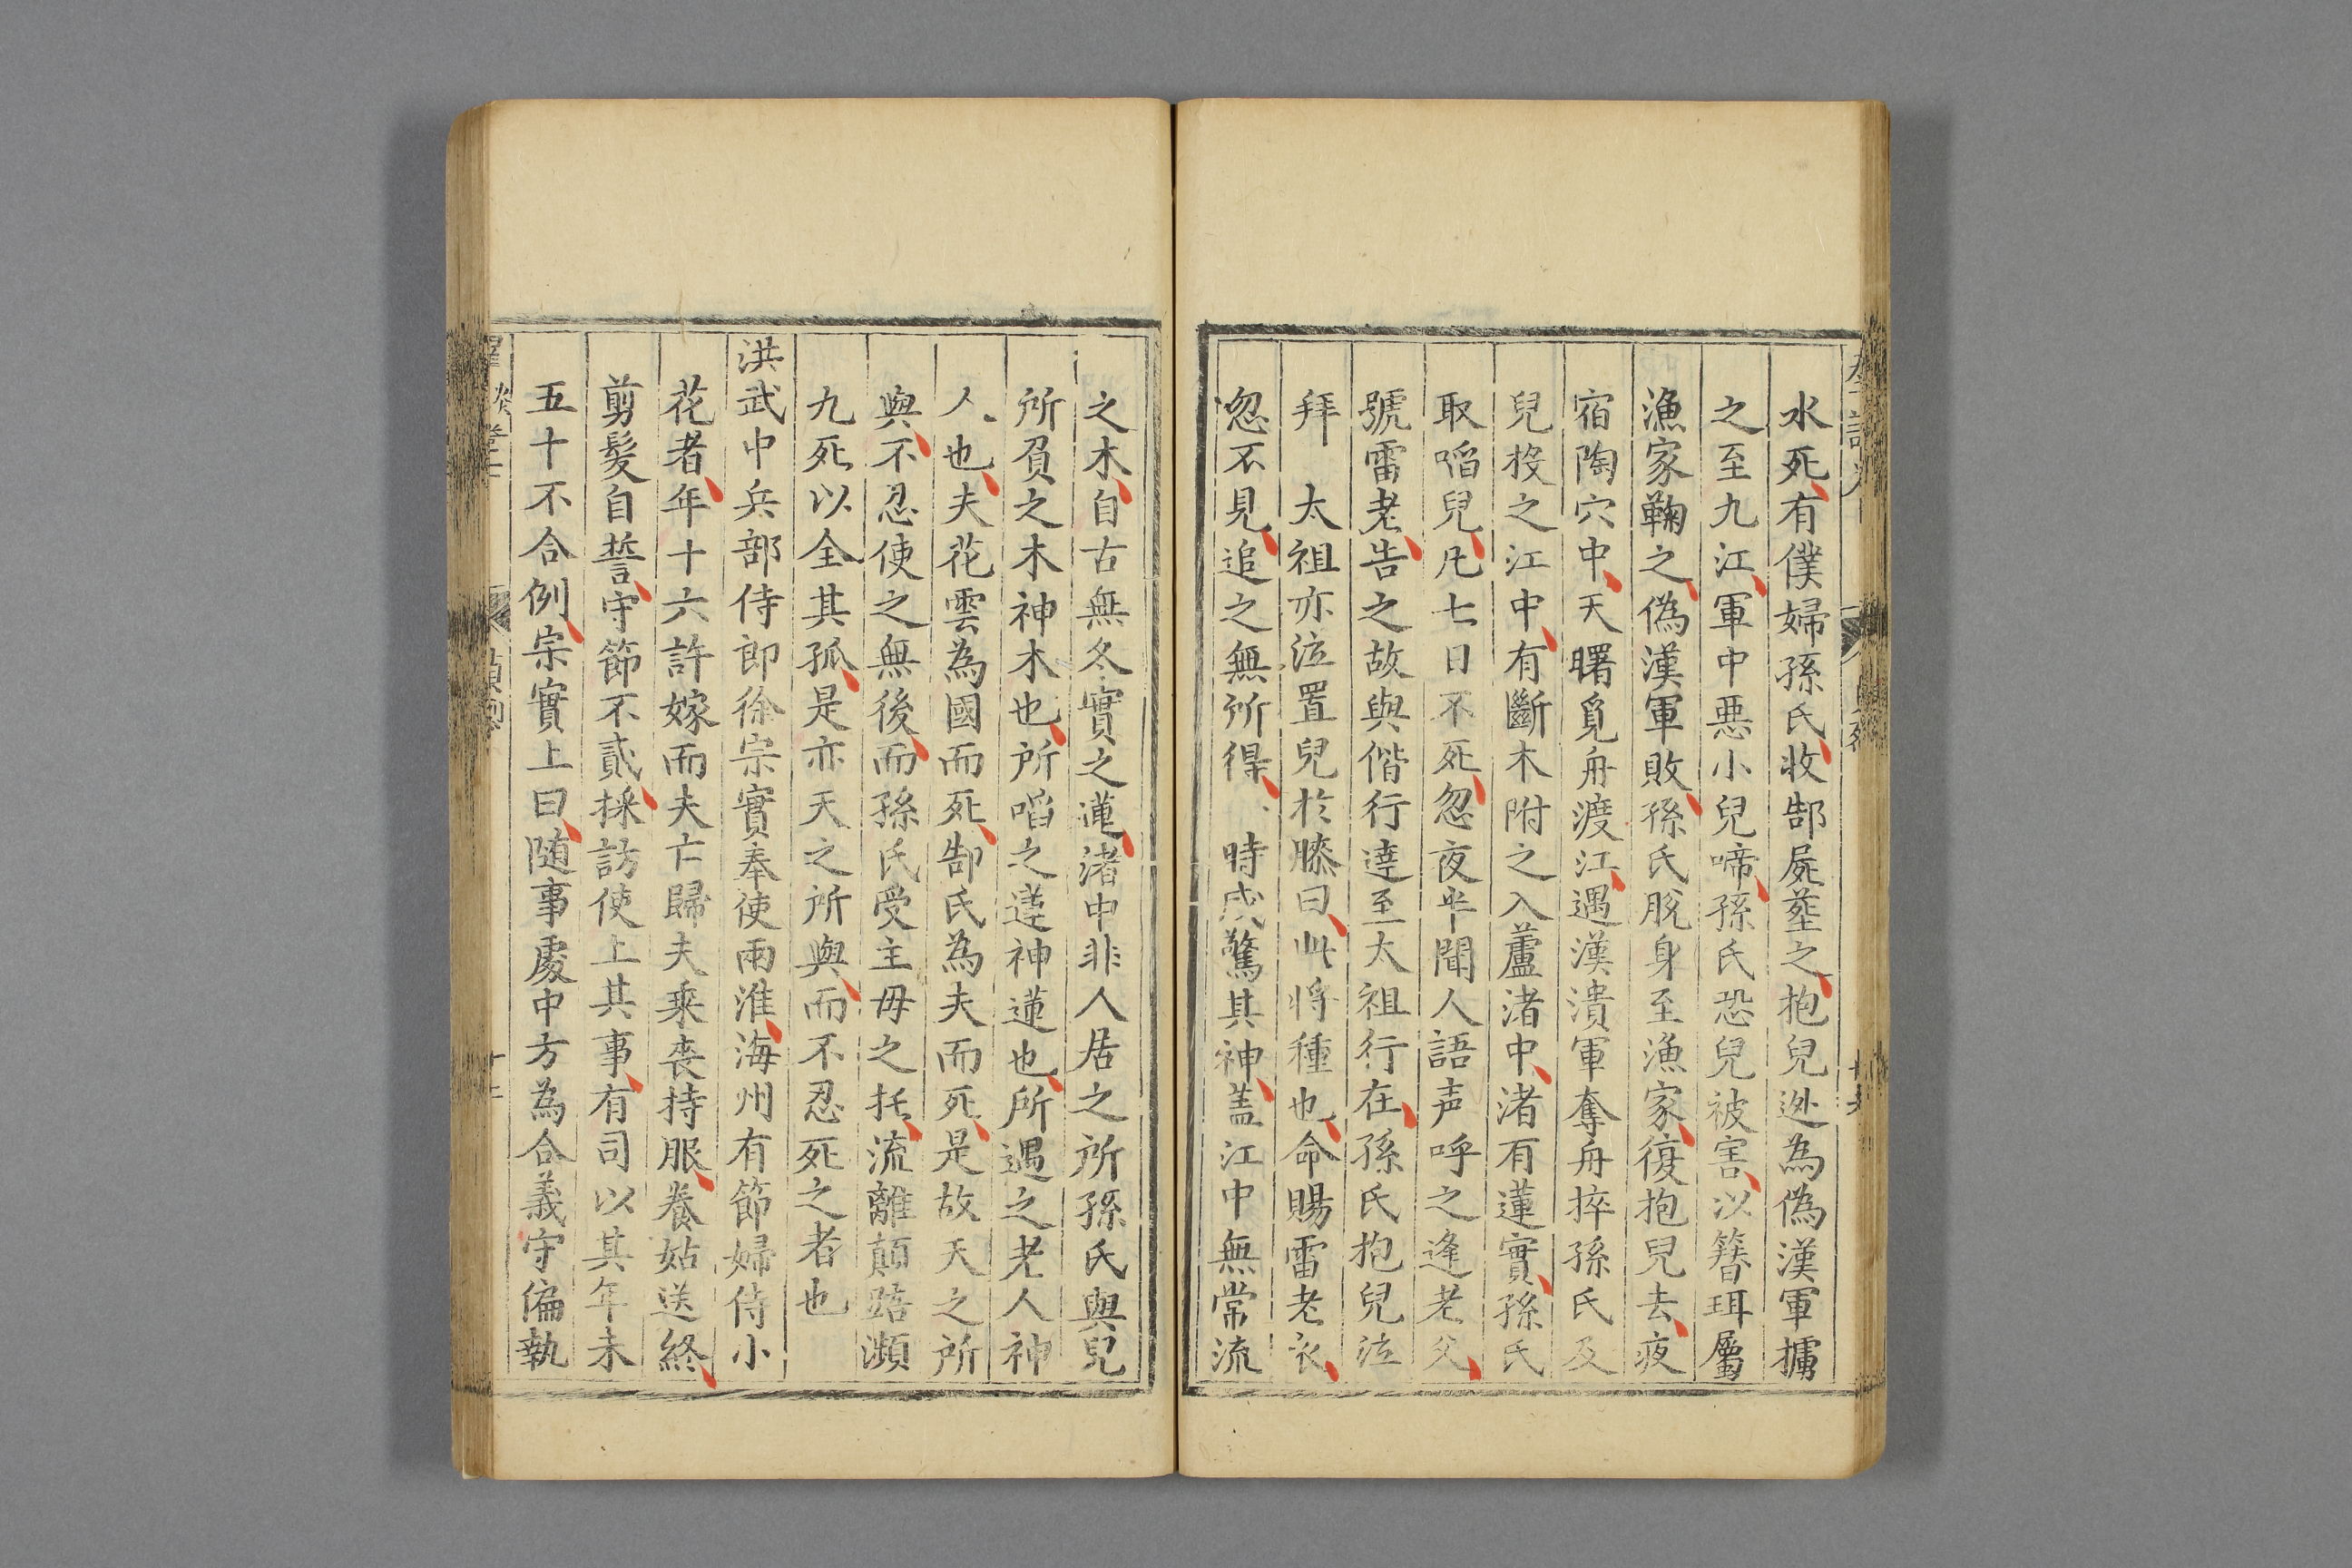 水死有僕婦孫氏收郜屍塟之抱兒迯為偽漢軍擄
之至九江軍中悪小兒啼孫氏恐兒被害以簮珥屬
漁家鞠之偽漢軍敗孫氏脫身至漁家復抱兒去夜
宿陶穴中天曙覓舟渡江遇漢潰軍奪舟捽孫氏及
兒投之江中有斷木附之入蘆渚中渚有蓮實孫氏
取啗兒凡七日不死忽夜半聞人語声呼之逢老父
號雷老告之故與偕行達至太祖行在孫氏抱兒泣
拜　太祖亦泣置兒於膝曰此將種也命賜雷老衣
忽不見追之無所得　時咸驚其神盖江中無常流
之木自古無冬實之蓮渚中非人居之所孫氏與兒
所負之木神木也所啗之蓮神蓮也所遇之老人神
人也夫花雲為國而死郜氏為夫而死是故天之所
與不忍使之無後而孫氏受主母之托流離顛踣瀕
九死以全其孤是亦天之所與而不忍死之者也
洪武中兵部侍郎徐宗實奉使兩淮海州有節婦侍小
花者年十六許嫁而夫亡歸夫乘喪持服養姑送終
剪髮自誓守節不貳採訪使上其事有司以其年未
五十不合例宗實上曰随事處中方為合義守偏執